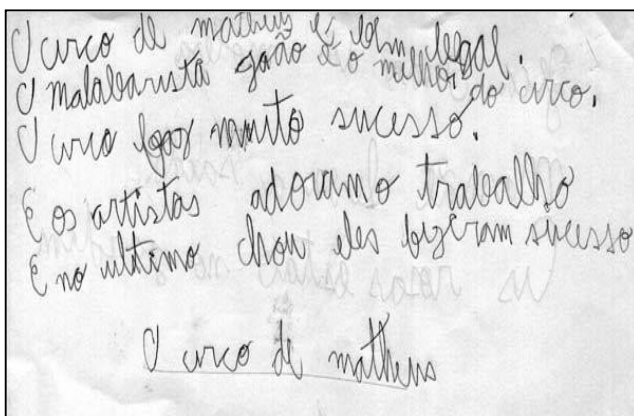 O circo de matheus é bem legal.
O malabarista goão é o milhor do circo.
O circo faz muito sucesso.
E os artistas adoramo trabalho
E no ultimo chou eles fizeram sucesso
O circo de matheus